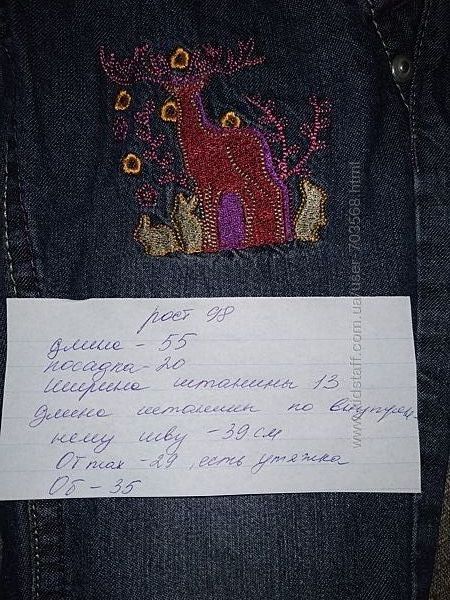 рост 98
длина - 55
посадка - 20
ширина штанины 13
длина штанин по внутрен
нему шву - 39 см
От max - 29, есть утяжка
Об - 35
www.kidstaff.com.ua/user-703568.html